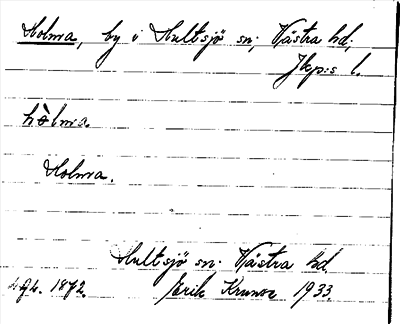 Holma, by i Hultsjö sn, Västra hd,
Jkp:s l.
hòlma
Holma.
Hultsjö sn. Västra hd.
1872. Erik 1933